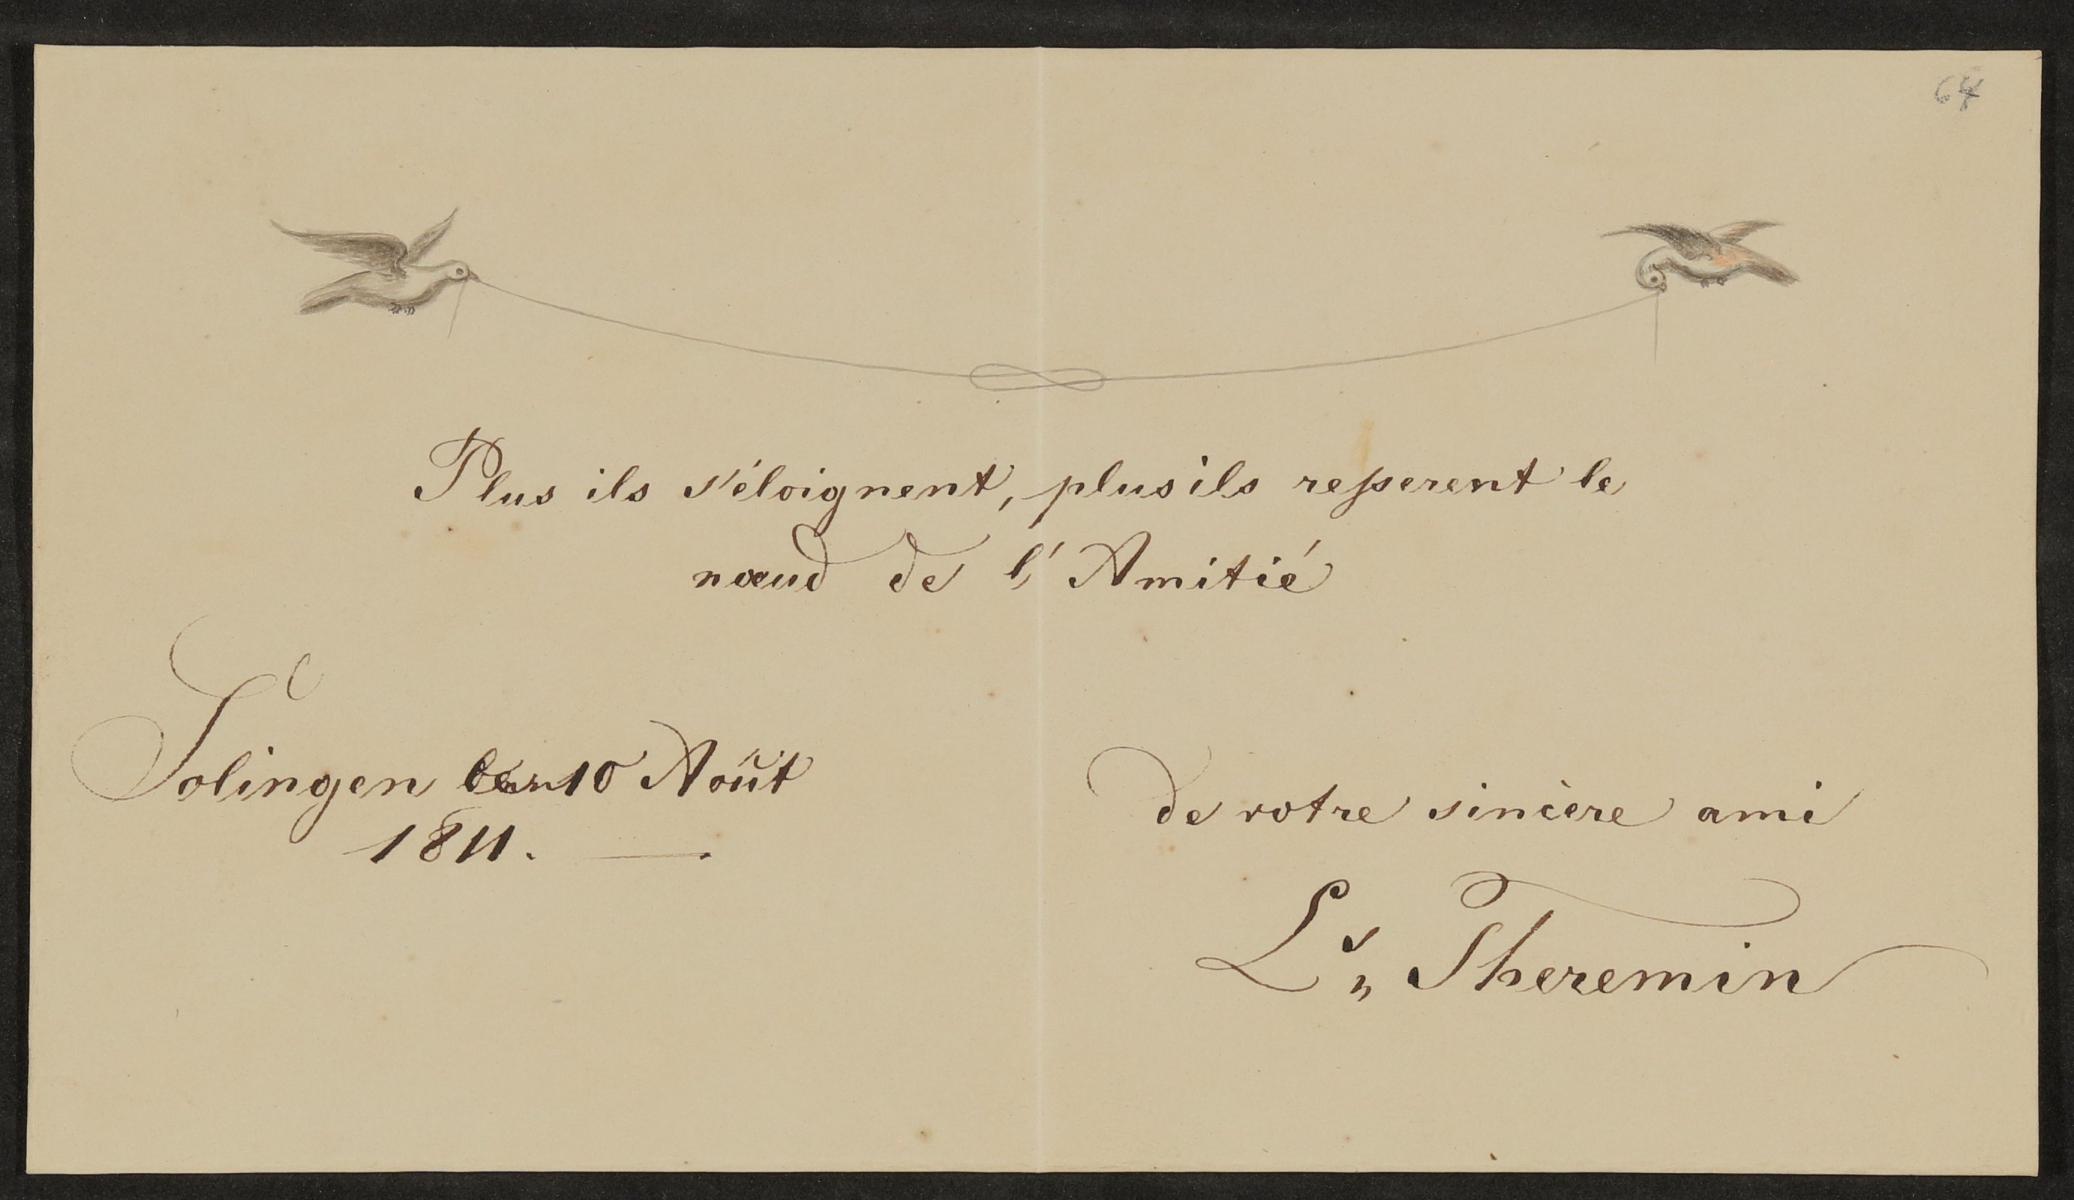 64
Plus ils s'éloignent, plus ils resserent le
nœud de l'Amitié
Solingen 10 Août
1811.
de votre sincère ami
Theremin